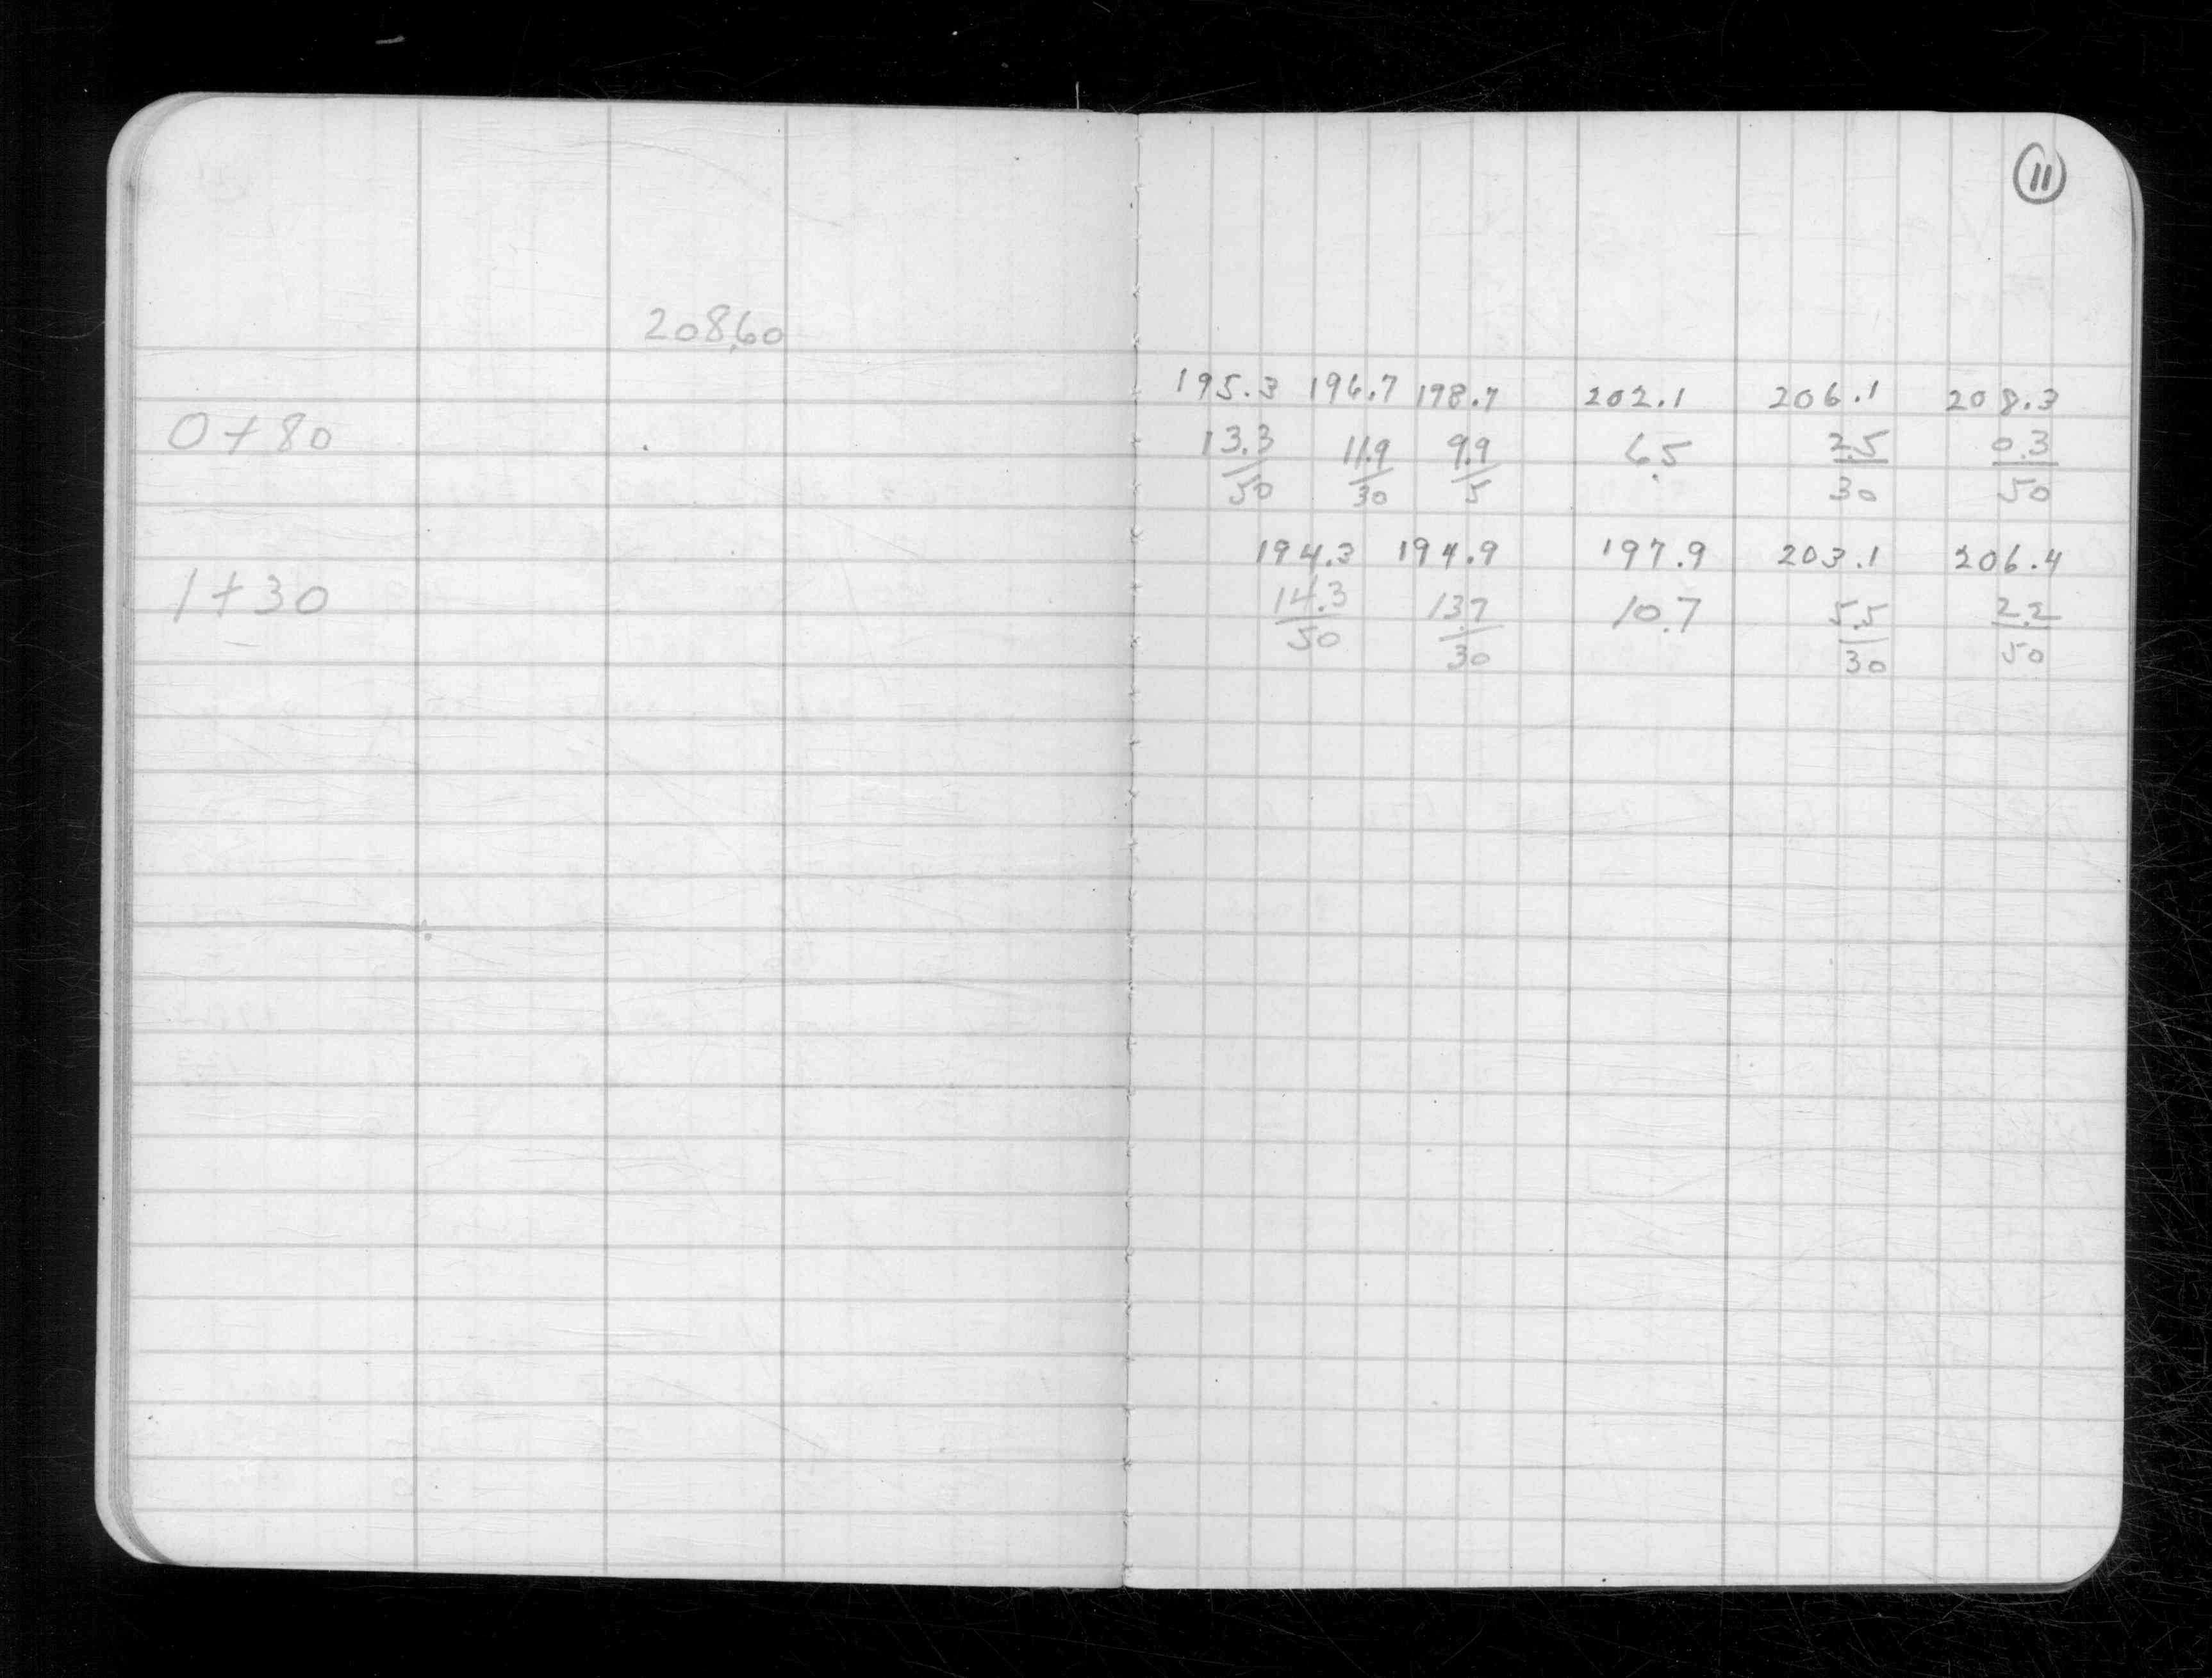 11
208.60
195.3 196.7 198.7 202.1 206.1 208.3
0+80 13.3 11.9 9.9 6.5 2.5 0.3
50 30 5 30 50
194.3 194.9 197.9 203.1 206.4
1+30 14.3 13.7 10.7 5.5 2.2
50 30 30 50